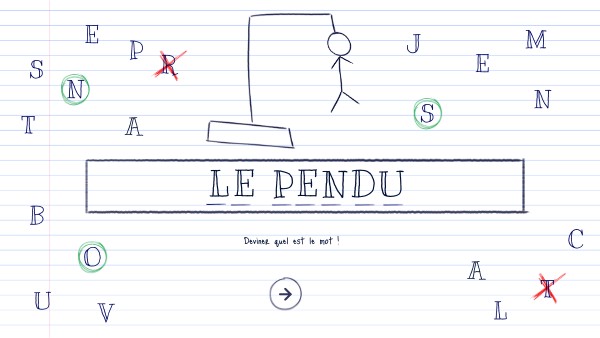 E
P
R
J
E
M
S
N
S
N
T
A
LE PENDU
Deviner quel est le mot !
B
C
O
A
T
U
V
L